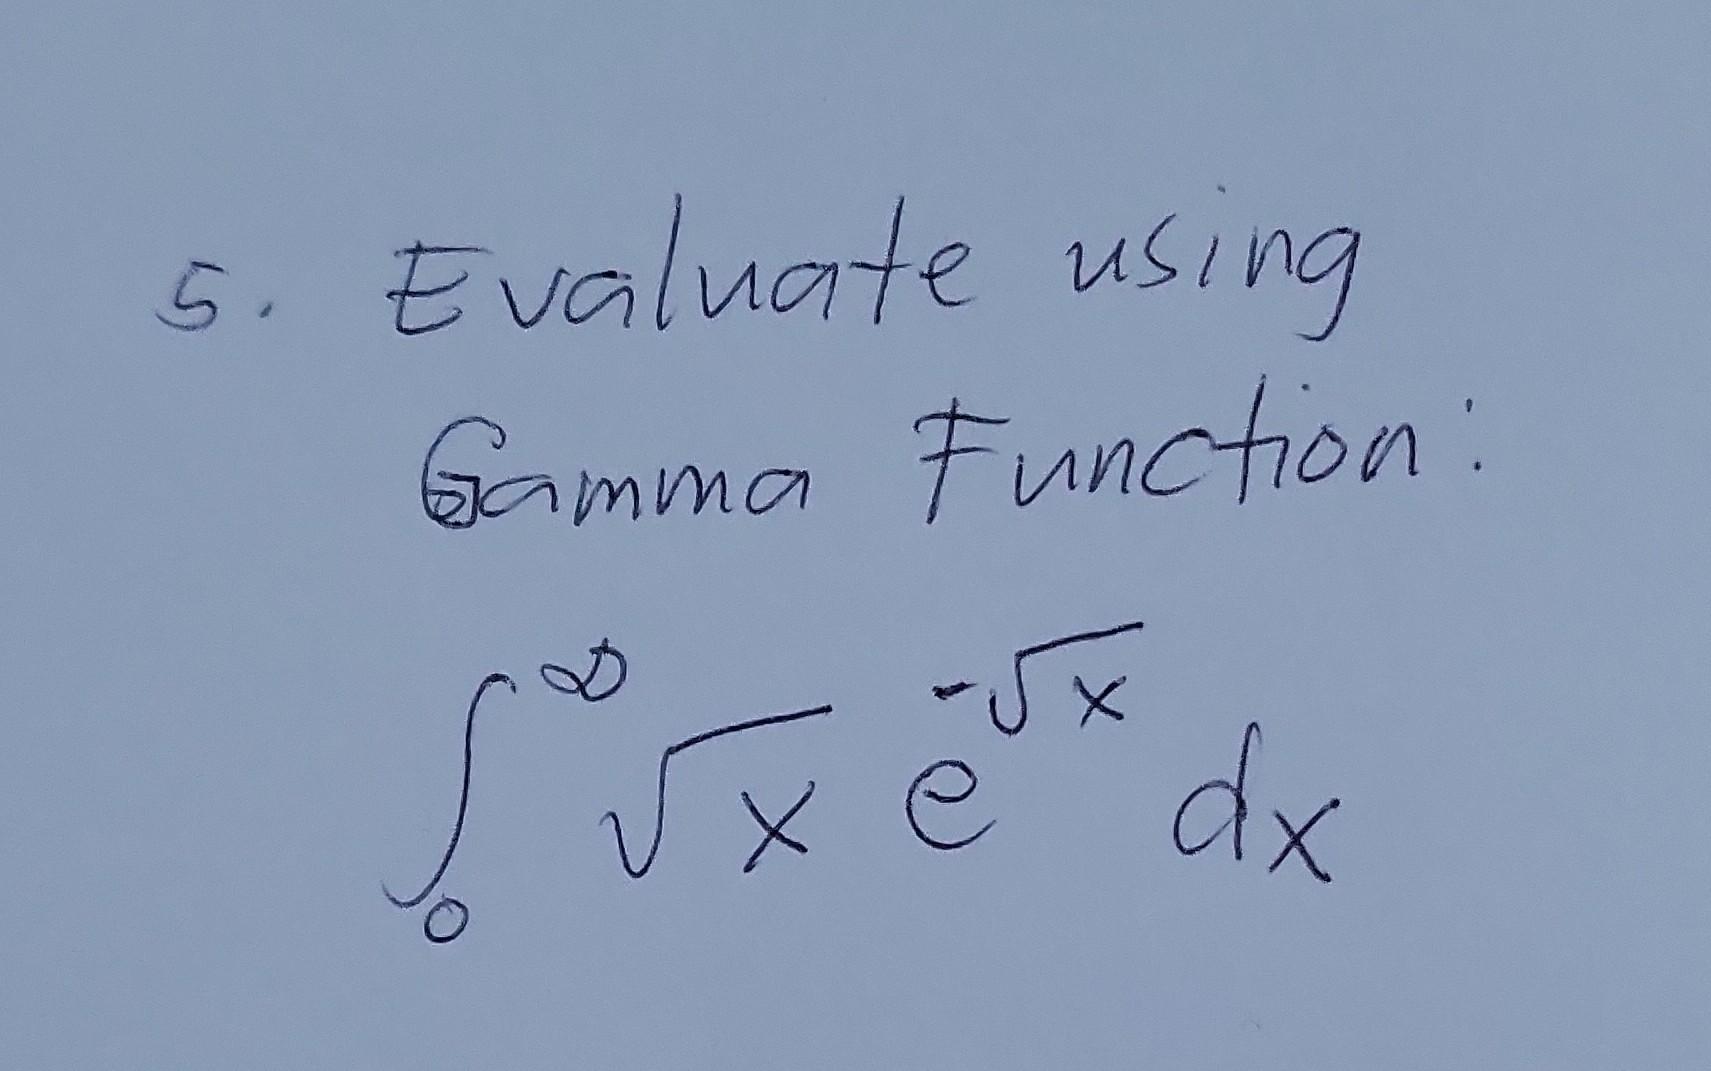 5. Evaluate using
Gamma Function:
∫₀^∞ √x e^(-√x) dx